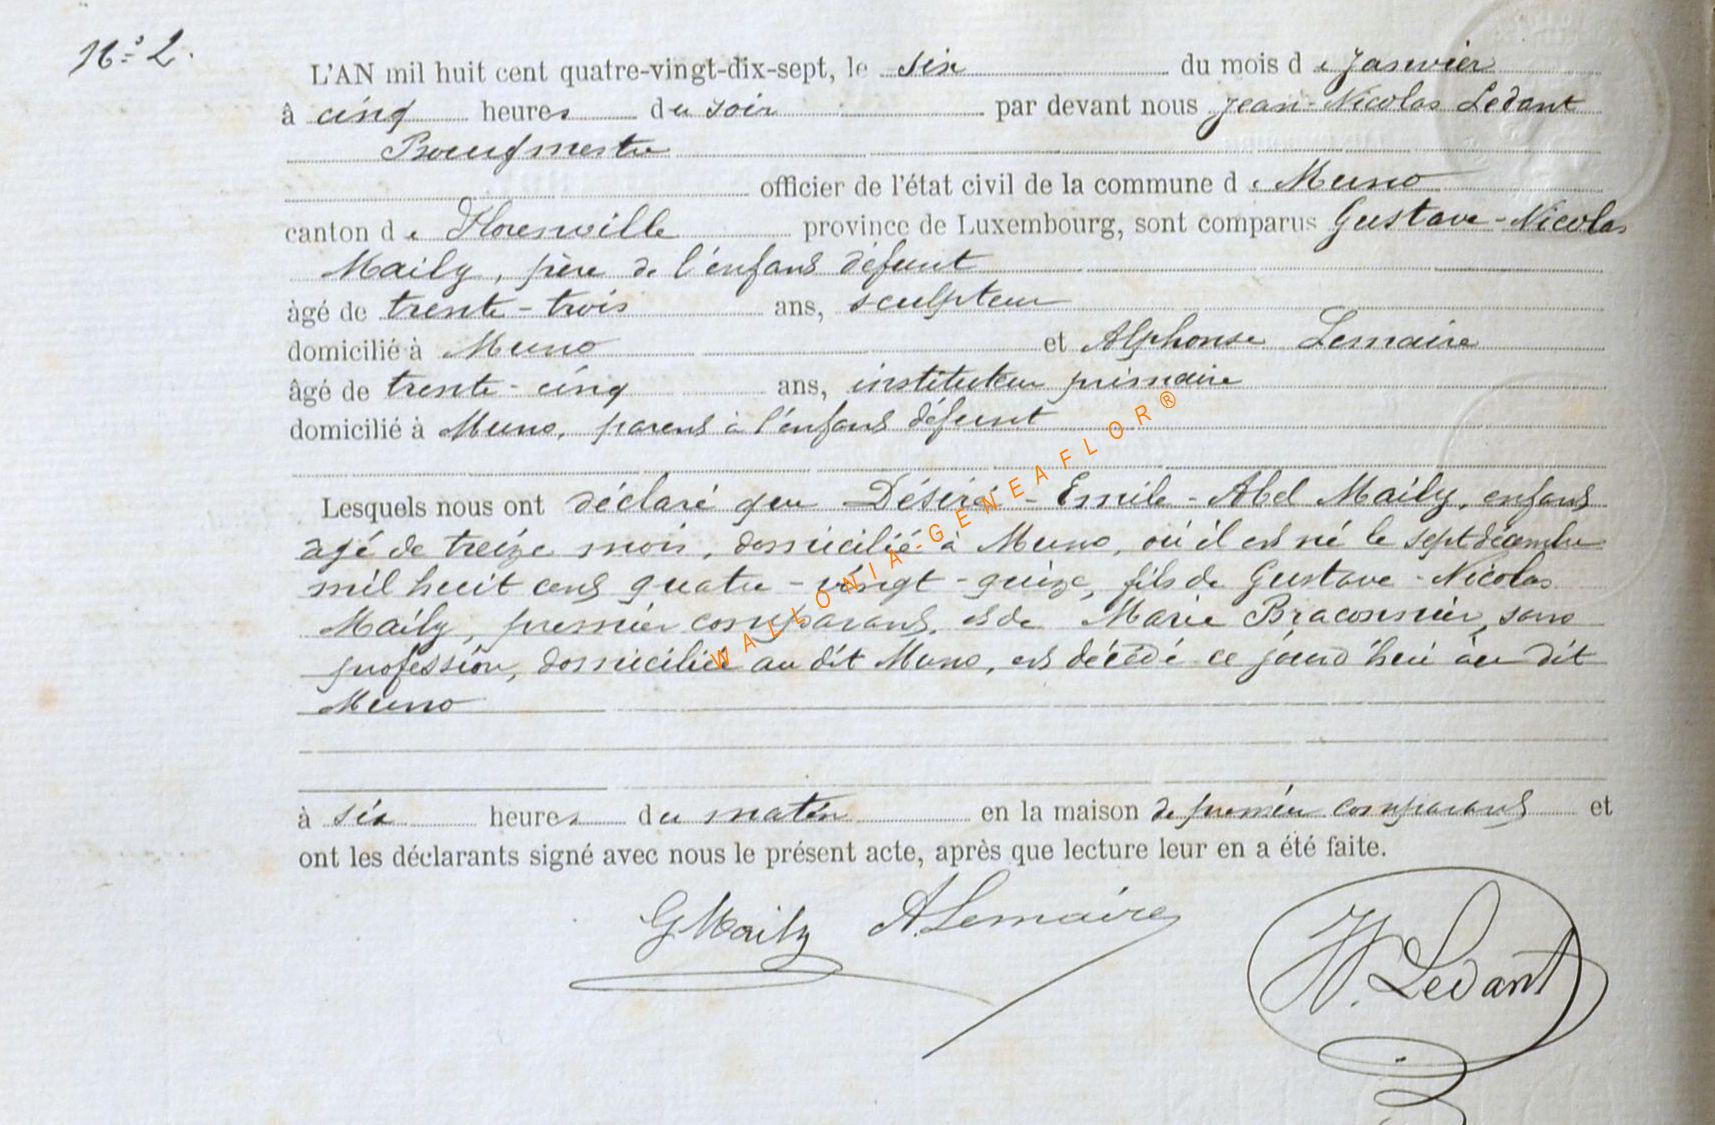 N.° 2.
L'AN mil huit cent quatre-vingt-dix-sept, le six du mois de Janvier
à cinq heures du soir par devant nous Jean-Nicolas Ledant
Bourgmestre
officier de l'état civil de la commune de Muno
canton de Florenville province de Luxembourg, sont comparus Gustave-Nicolas
Maily, père de l'enfant défunt
âgé de trente-trois ans, sculpteur
domicilié à Muno et Alphonse Lemaire
âgé de trente-cinq ans, instituteur primaire
domicilié à Muno, parent à l'enfant défunt
Lesquels nous ont déclaré que Désiré-Emile-Abel Maily, enfant
âgé de treize mois, domicilié à Muno, où il est né le sept décembre
mil huit cent quatre-vingt-quinze, fils de Gustave-Nicolas
Maily, premier comparant, et de Marie Braconnier, sans
profession, domiciliée au dit Muno, est décédé ce jourd'hui au dit
Muno
à six heures du matin en la maison de premier comparant et
ont les déclarants signé avec nous le présent acte, après que lecture leur en a été faite.
G Maily A. Lemaire N. Ledant
WALLONIA-GENEAFLOR®